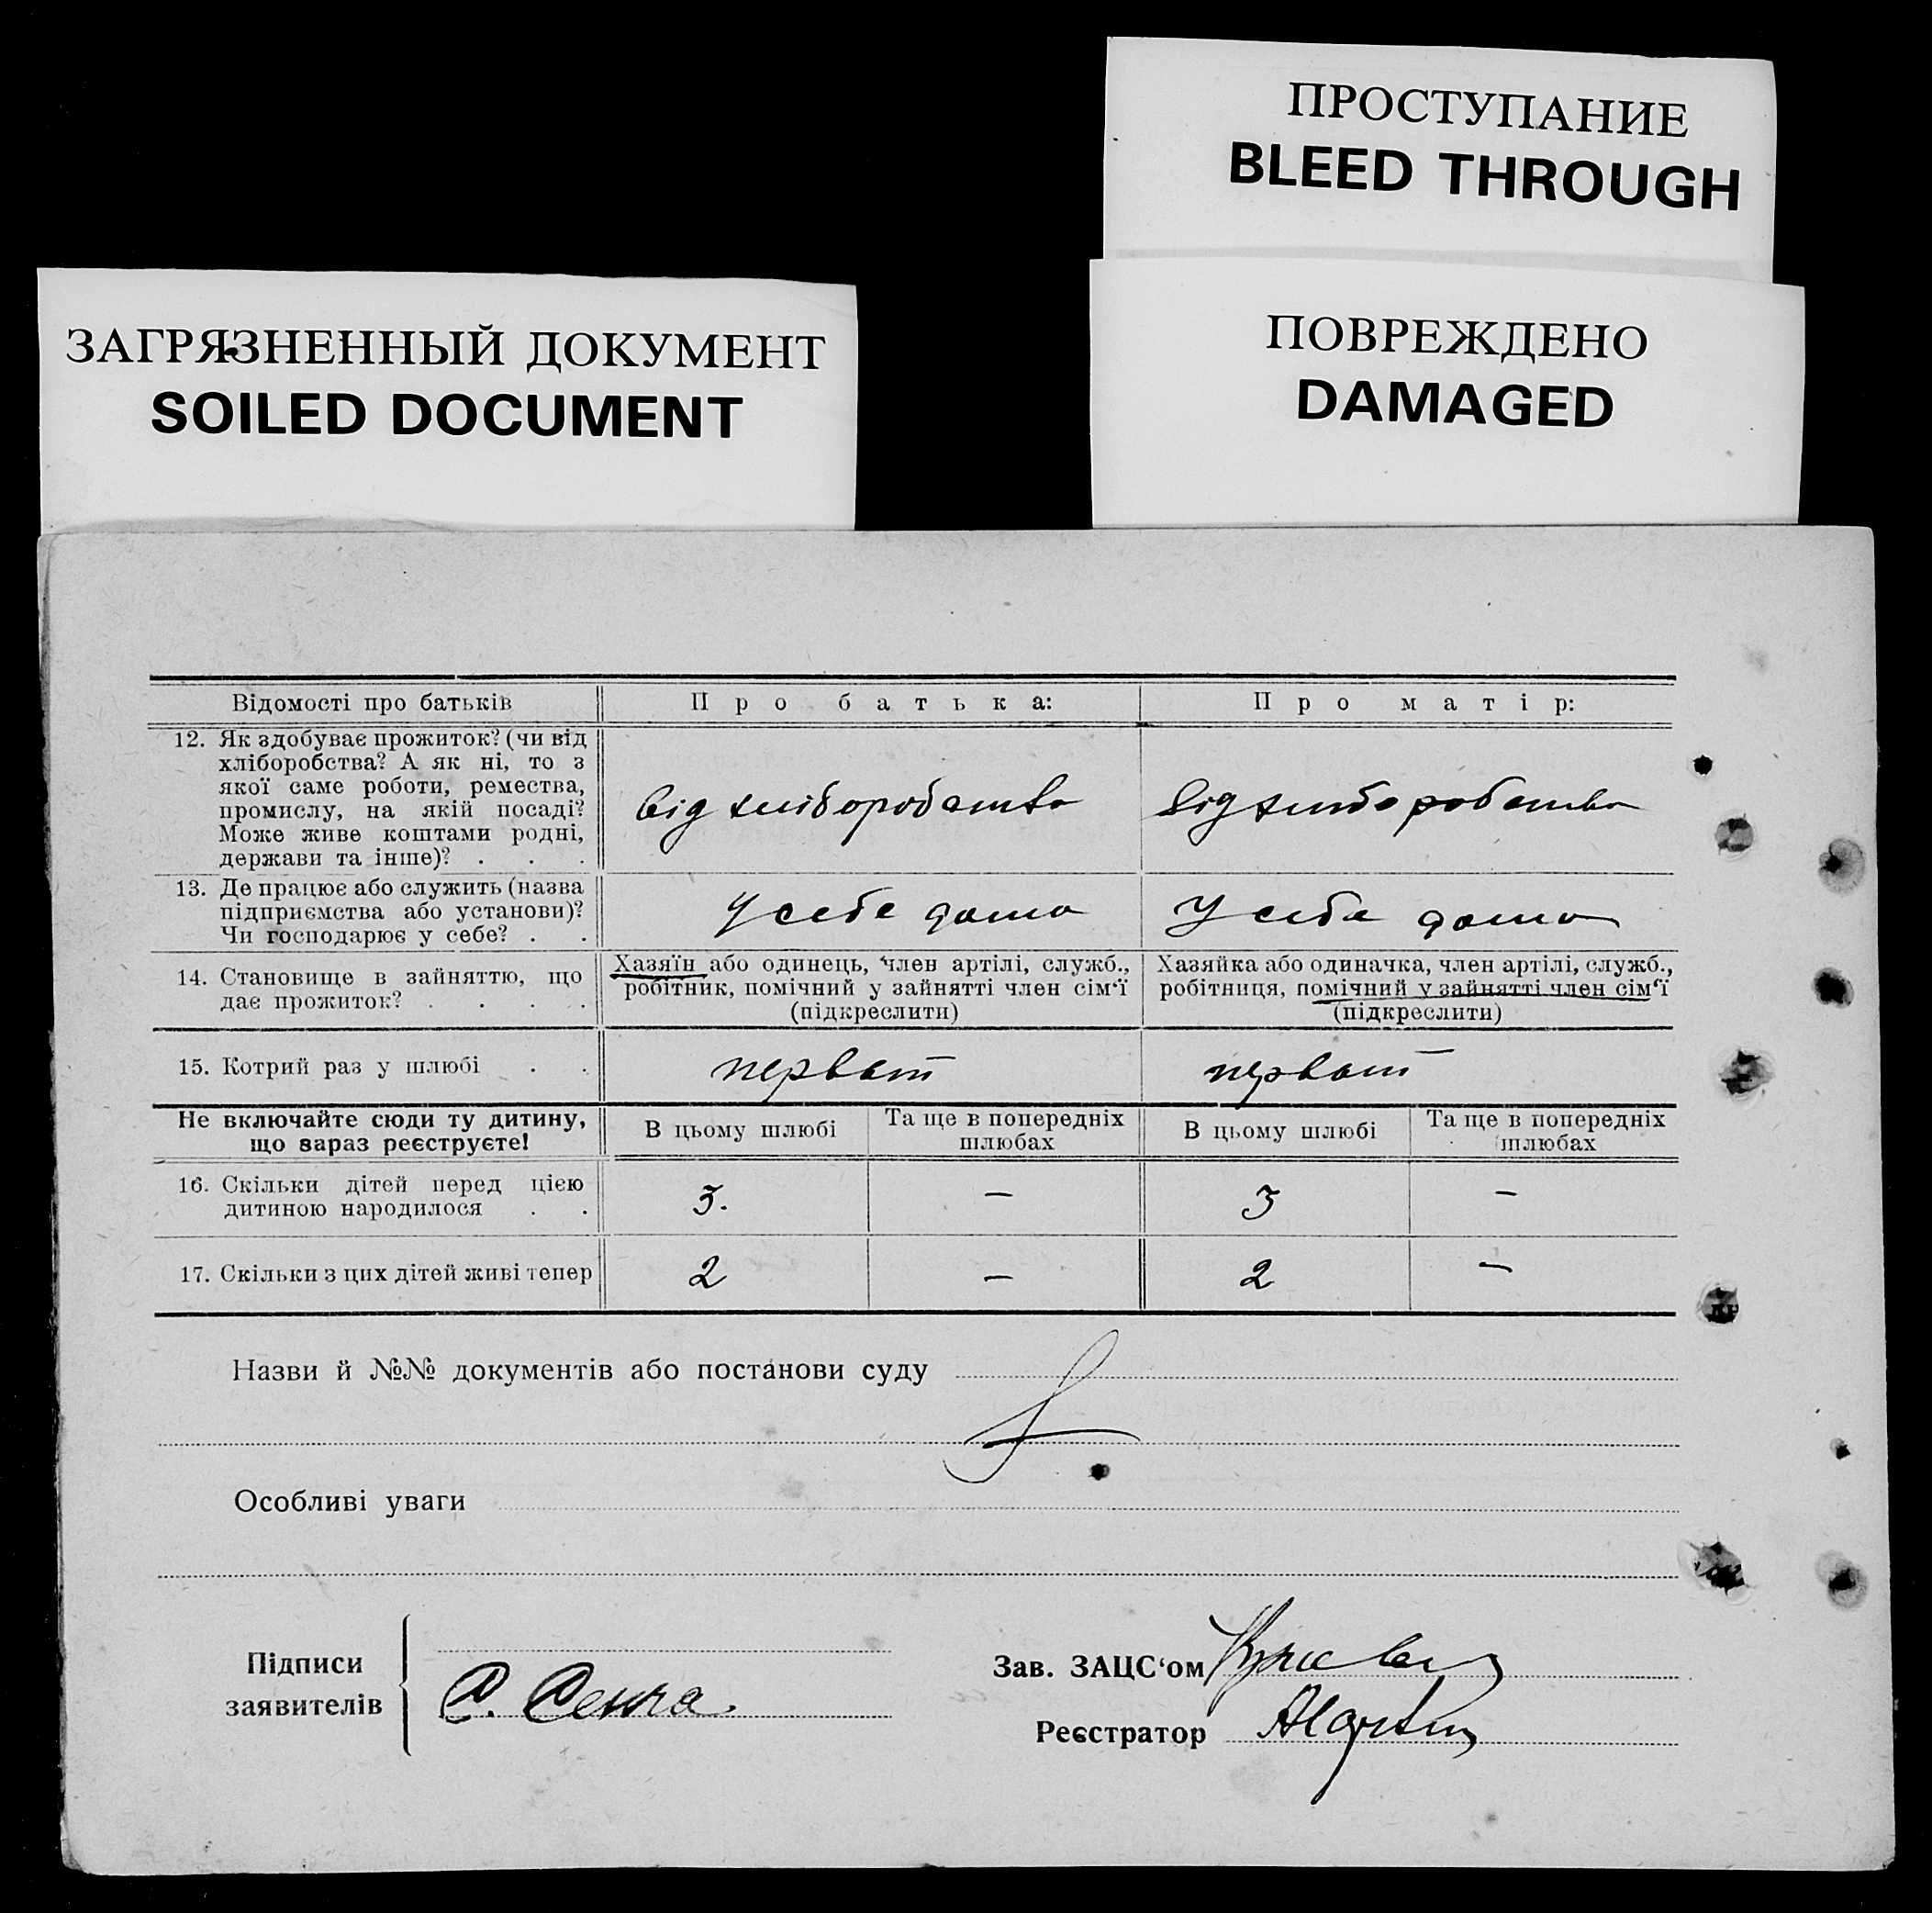 ПРОСТУПАНИЕ
BLEED THROUGH
ЗАГРЯЗНЕННЫЙ ДОКУМЕНТ
SOILED DOCUMENT
ПОВРЕЖДЕНО
DAMAGED
Відомості про батьків
Про батька:
Про матір:
12. Як здобуває прожиток? (чи від
хліборобства? А як ні, то з
якої саме роботи, ремества,
промислу, на якій посаді?
Може живе коштами родні,
держави та інше)? . . .
від хліборобства
від хліборобства
13. Де працює або служить (назва
підприємства або установи)?
Чи господарює у себе? . .
У себе дома
У себе дома
14. Становище в зайняттю, що
дає прожиток? . . . .
Хазяїн або одинець, член артілі, служб.,
робітник, помічний у зайнятті член сім‘ї
(підкреслити)
Хазяйка або одиначка, член артілі, служб.,
робітниця, помічний у зайнятті член сім‘ї
(підкреслити)
15. Котрий раз у шлюбі . .
первий
первий
Не включайте сюди ту дитину,
що зараз реєструєте!
В цьому шлюбі
Та ще в попередніх
шлюбах
В цьому шлюбі
Та ще в попередніх
шлюбах
16. Скільки дітей перед цією
дитиною народилося . .
3.
—
3
—
17. Скільки з цих дітей живі тепер
2
—
2
—
Назви й №№ документів або постанови суду
Особливі уваги
Підписи
заявителів
С. Сенча
Зав. ЗАЦС‘ом
Реєстратор